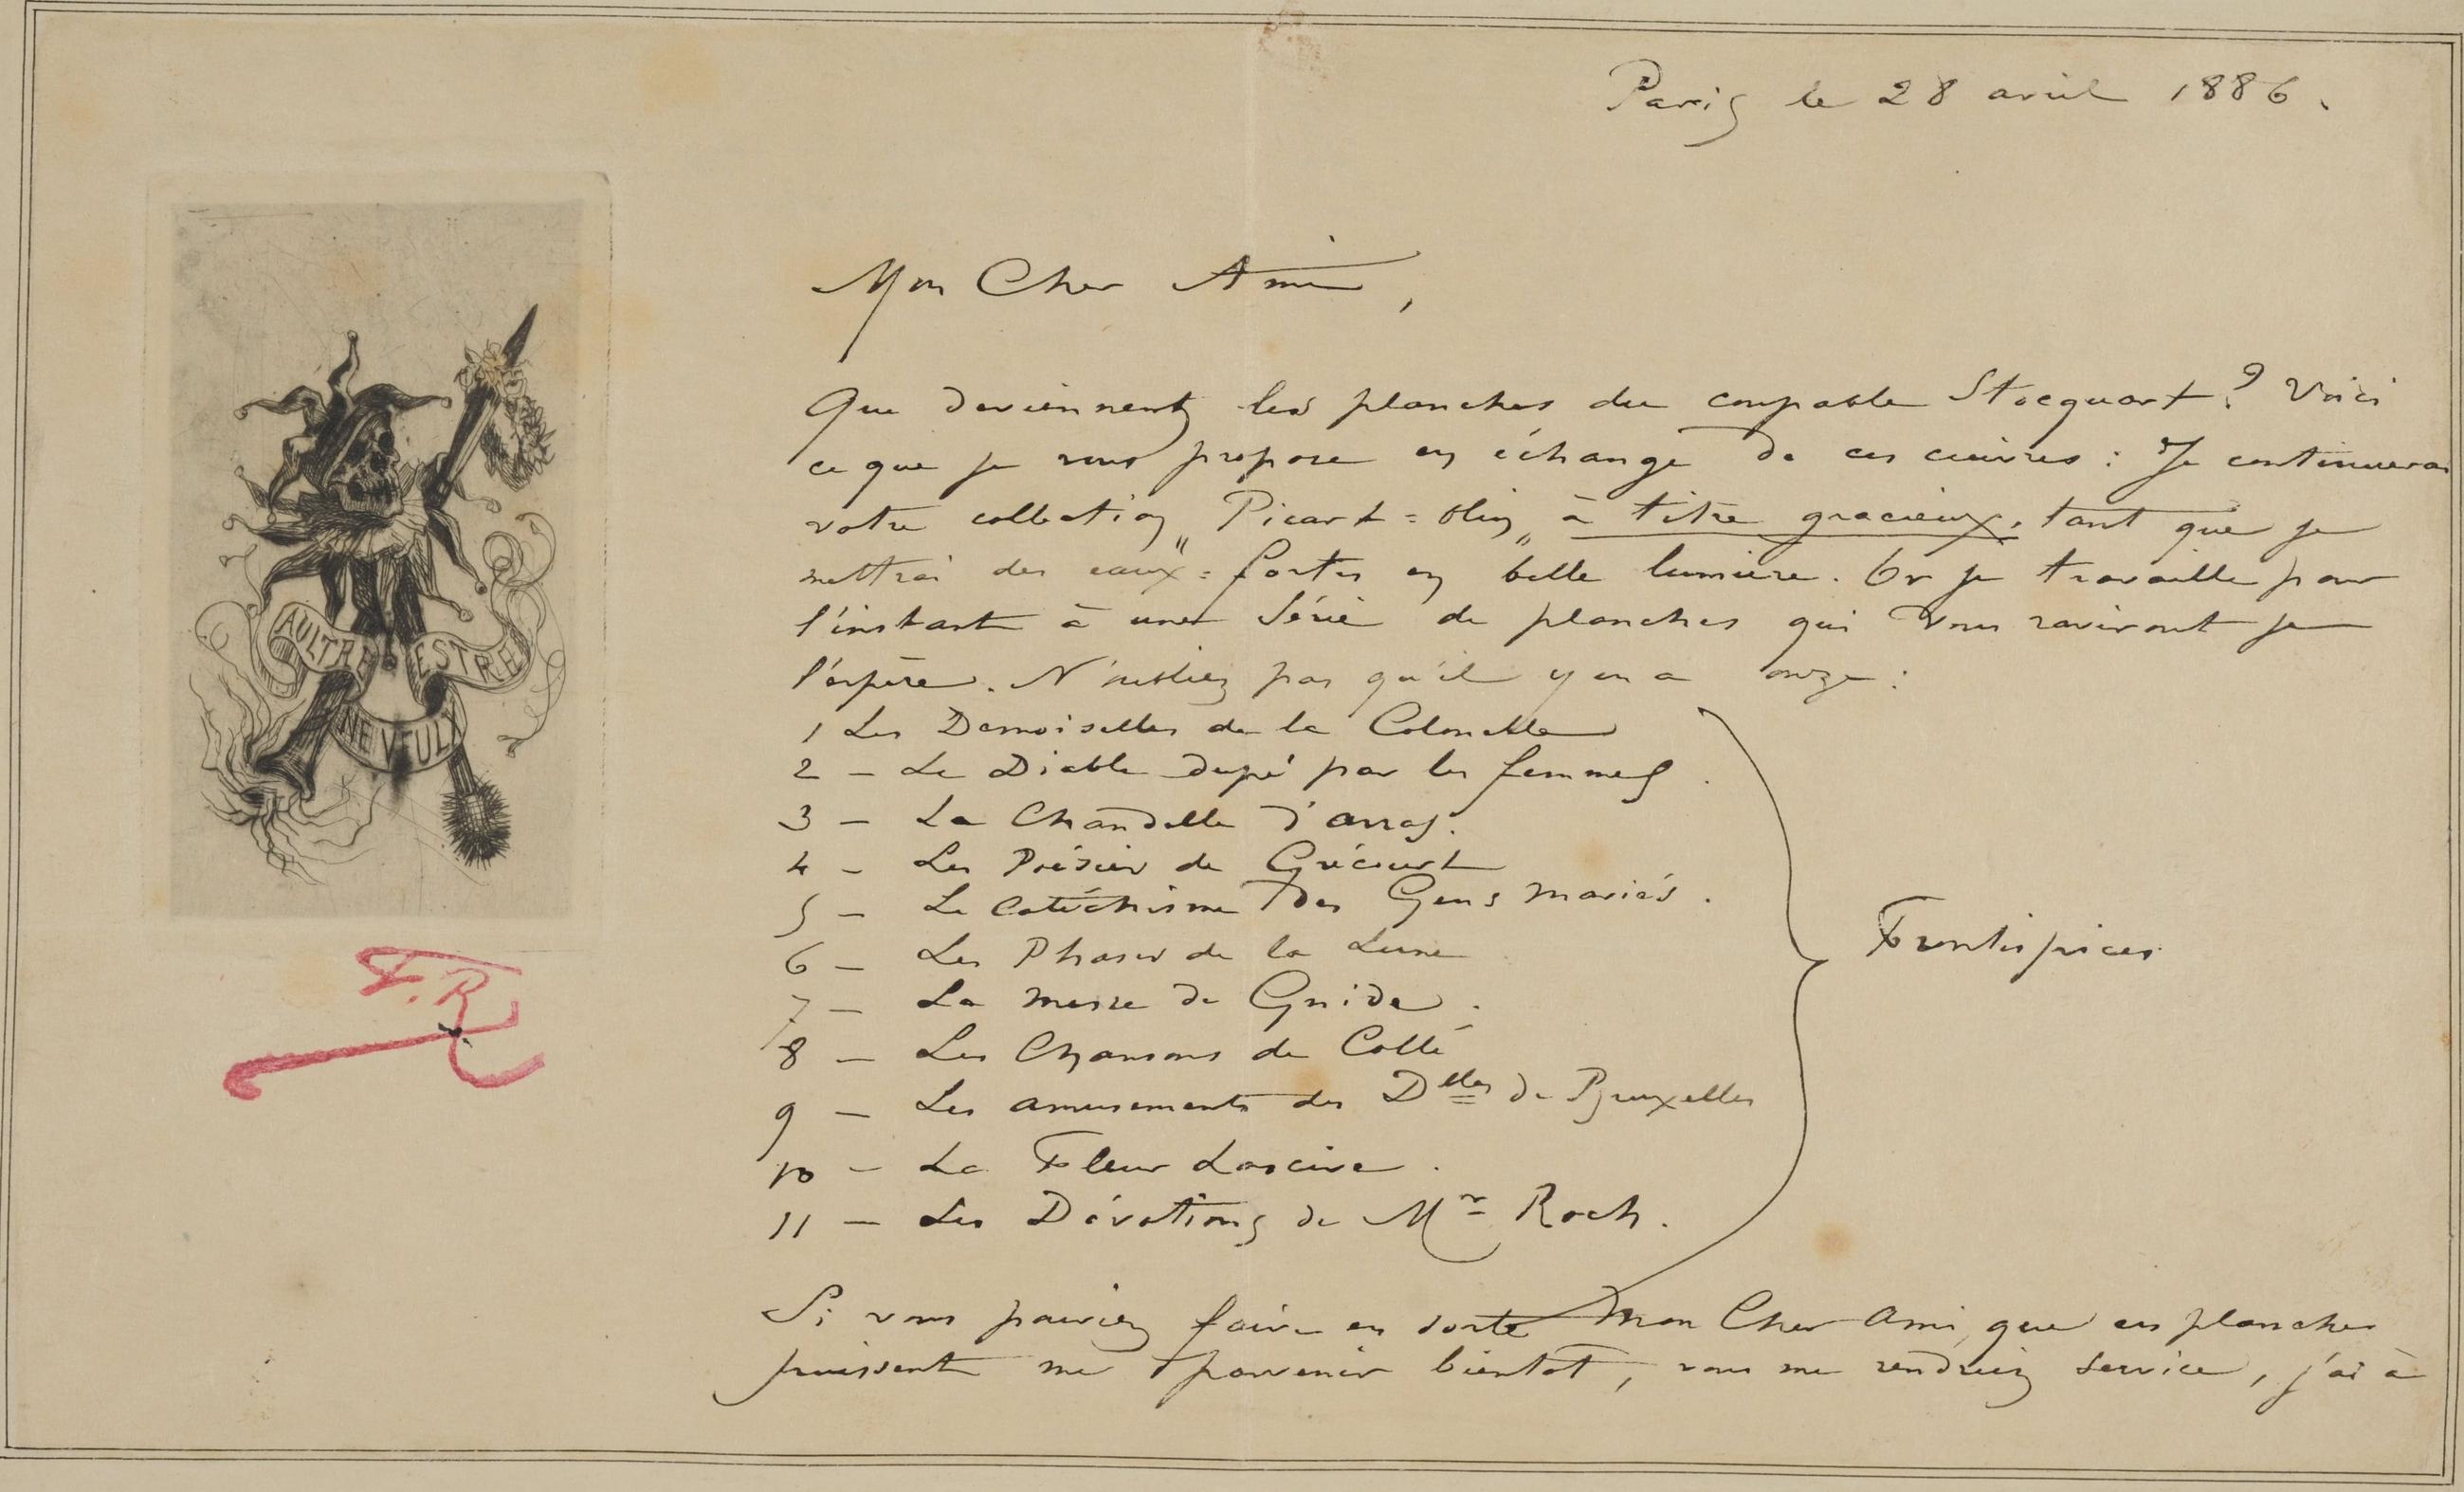 Paris le 28 avril 1886.
Mon Cher Ami,
Que deviennent les planches du coupable Stocquart? Voici
ce que je vous propose en échange de ces cuivres : Je continuerai
votre collection „ Picart = Olin „ à titre gracieux, tant que je
mettrai des eaux = fortes en belle lumière. Or je travaille pour
l'instant à une Série de planches qui vous raviront je
l'espère. N'oubliez pas qu'il y en a onze :
1 Les Demoiselles de la Colonelle
2 – Le Diable dupé par les femmes.
3 – La Chandelle d'arras.
4 – Les Poésies de Grécourt
5 – Le Catéchisme des Gens mariés.
6 – Les Phases de la Lune
7 – La messe de Gnide.
8 – Les Chansons de Collé
9 – Les amusements des Dlles de Bruxelles
10 – La Fleur Lascive.
11 – Les Dévotions de Mr Roch.
Frontispices
Si vous pouviez faire en sorte Mon Cher Ami, que ces planches
puissent me parvenir bientot, vous me rendriez service, j'ai à
AULTRE ESTRE
NE VEULX
F.R